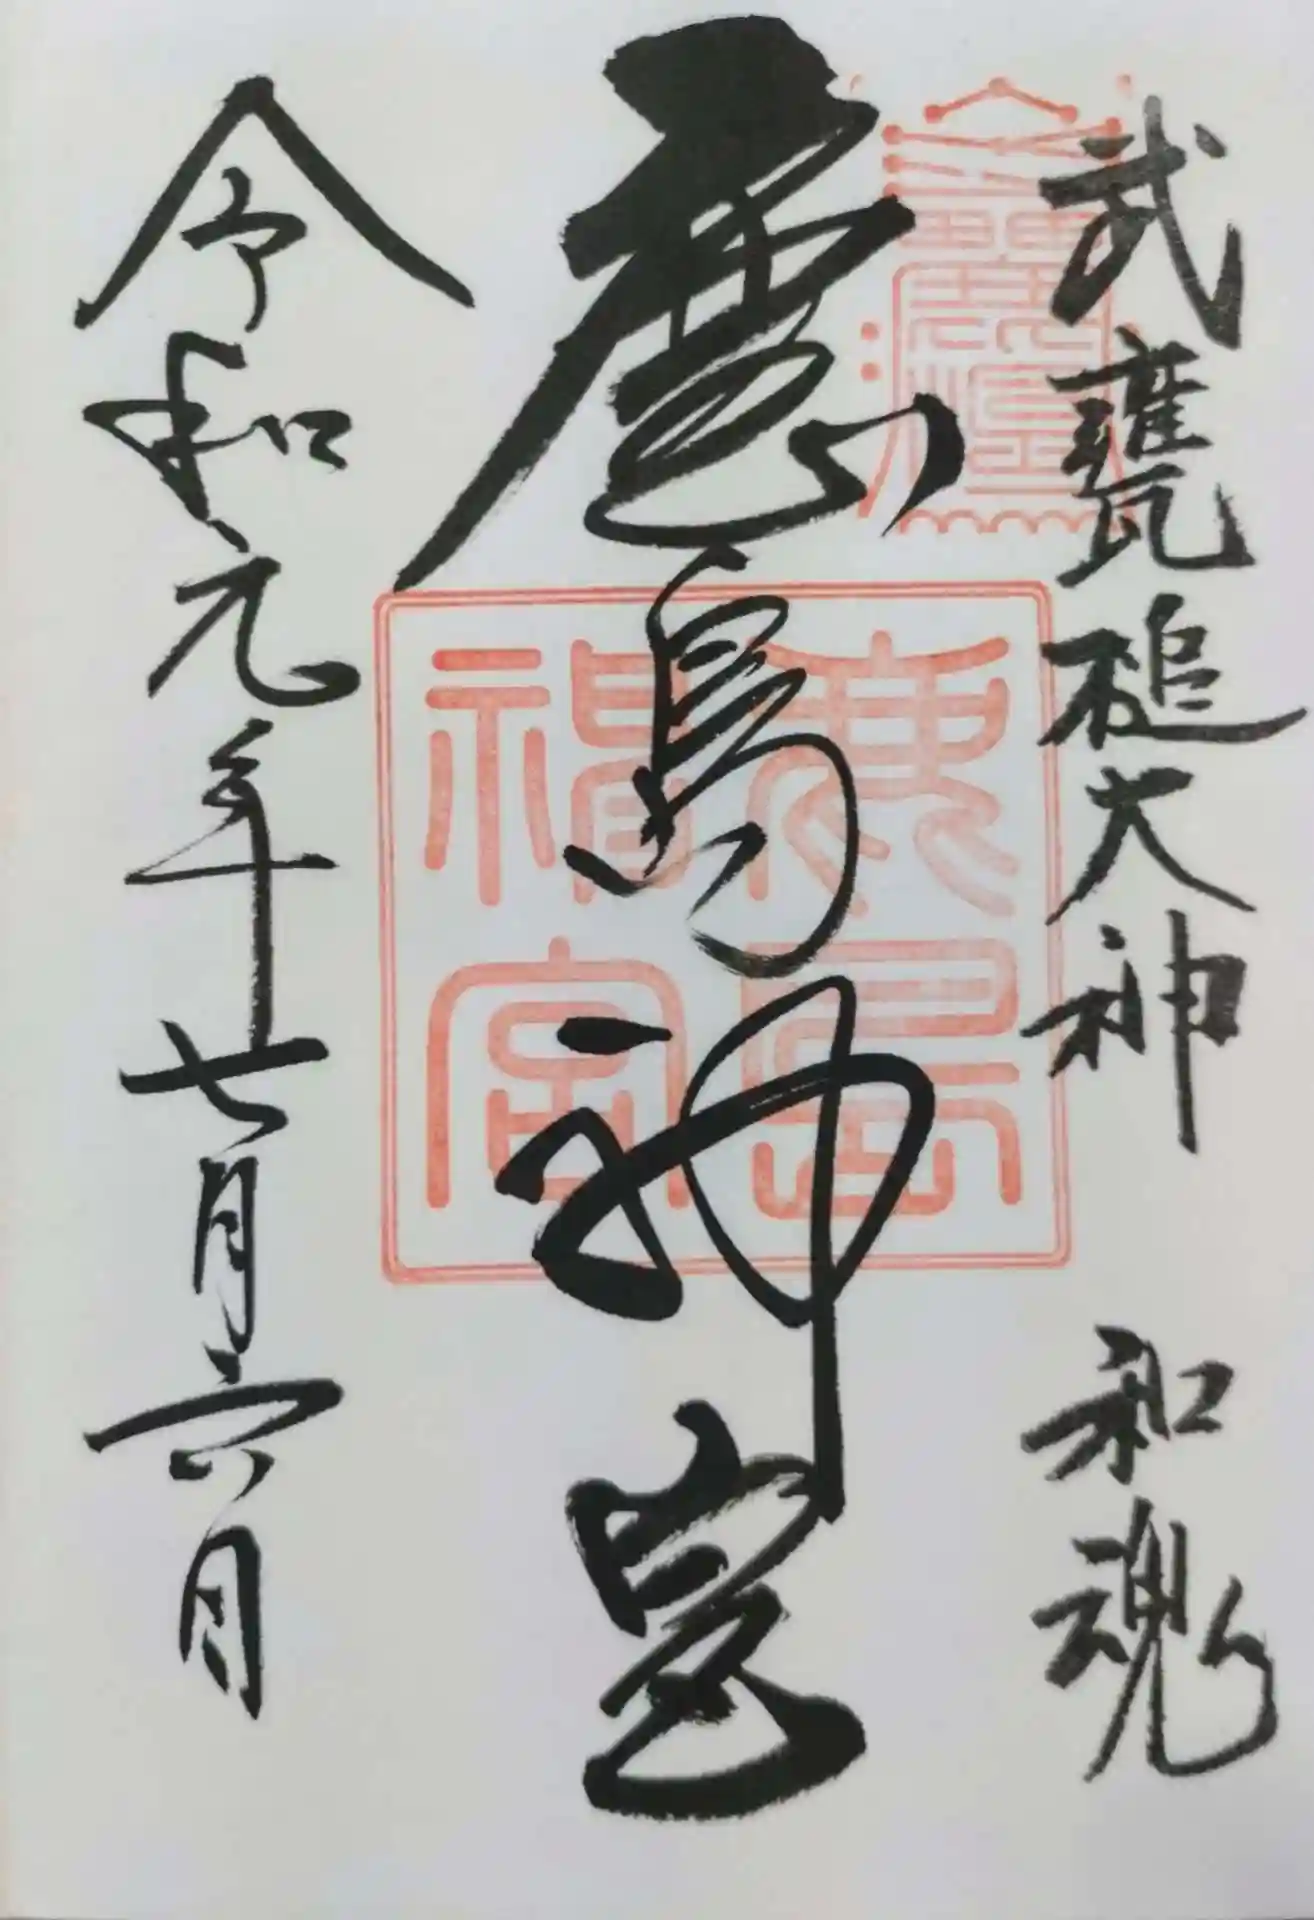 武甕槌大神 和魂
鹿島神宮
鹿島神宮
令和元年七月六日